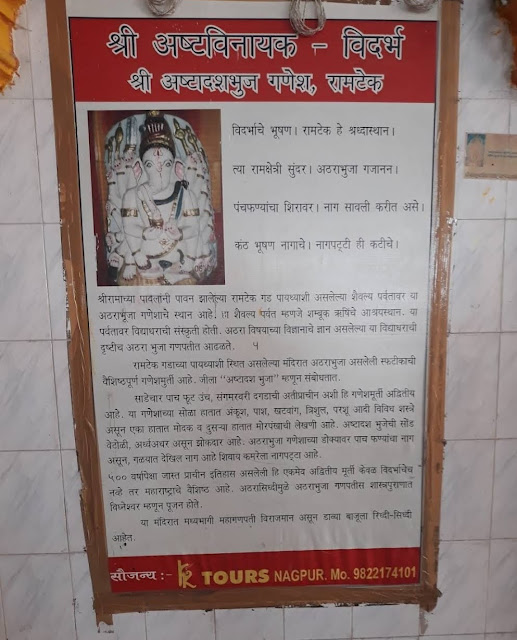 श्री अष्टविनायक - विदर्भ
श्री अष्टादशभुज गणेश, रामटेक
विदर्भाचे भूषण। रामटेक हे श्रध्दास्थान।
त्या रामक्षेत्री सुंदर। अठराभुजा गजानन।
पंचफण्यांचा शिरावर। नाग सावली करीत असे।
कंठ भूषण नागाचे। नागपट्टी ही कटीचे।
श्रीरामाच्या पावलांनी पावन झालेल्या रामटेक गड पायथ्याशी असलेल्या शैवल्य पर्वतावर या
अठराभुजा गणेशाचे स्थान आहे. शैवल्य पर्वत म्हणजे शम्बूक ऋषिचे आश्रयस्थान. या
पर्वतावर विद्याधराची संस्कृती होती. अठरा विषयाच्या विज्ञानाचे ज्ञान असलेल्या या विद्याधराची
दृष्टीच अठरा भुजा गणपतीत आढळते.
रामटेक गडाच्या पायथ्याशी स्थित असलेल्या मंदिरात अठराभुजा असलेली स्फटीकाची
वैशिष्टपूर्ण गणेशमुर्ती आहे. जीला "अष्टादश भुजा" म्हणून संबोधतात.
साडेचार पाच फूट उंच, संगमरवरी दगडाची अतीप्राचीन अशी हि गणेशमूर्ती अद्वितीय
आहे. या गणेशाच्या सोळा हातात अंकूश, पाश, खटवांग, त्रिशुल, परशू आदी विविध शस्त्रे
असून एका हातात मोदक व दुसऱ्या हातात मोरपंखाची लेखणी आहे. अष्टादश भुजेची सोंड
वेटोळी, अर्ध्यअधर असून झोकदार आहे. अठराभुजा गणेशाच्या डोक्यावर पाच फण्यांचा नाग
असून, गळयात देखिल नाग आहे शिवाय कमरेला नागपट्टा आहे.
५०० वर्षापेक्षा जास्त प्राचीन इतिहास असलेली हि एकमेव अद्वितीय मूर्ती केवळ विदर्भाचेच
नव्हे तर महाराष्ट्राचे वैशिष्ठ आहे. अठरासिध्दीमुळे अठराभुजा गणपतीस शास्त्रपुराणात
विघ्नेश्वर म्हणून पूजन होते.
या मंदिरात मध्यभागी महागणपती विराजमान असून डाव्या बाजूला रिध्दी-सिध्दी
आहेत.
सौजन्य :- TOURS NAGPUR. Mo. 9822174101